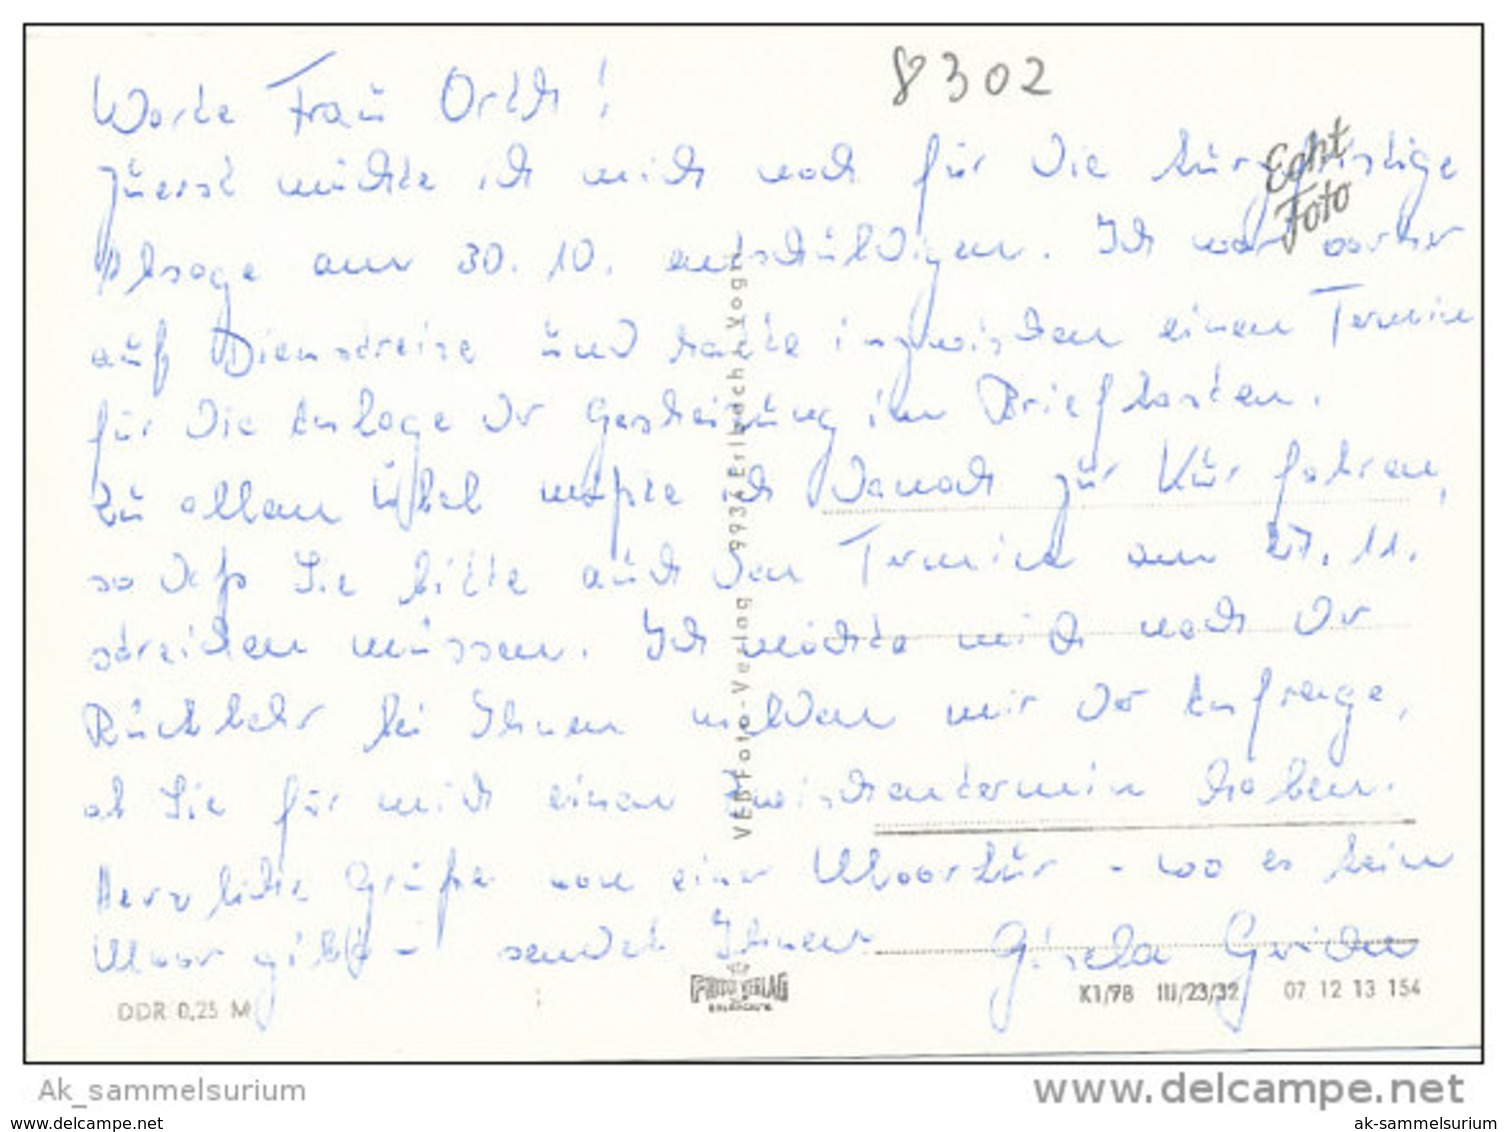 8302
Echt
Foto
Werte Frau Orth!
Zuerst möchte ich mich noch für die kurzfristige
Absage am 30. 10. entschuldigen. Ich war vorher
auf Dienstreise und hatte inzwischen einen Termin
für die Anlage der im Briefkasten.
Zu allem Übel mußte ich danach zur Kur fahren,
so daß Sie bitte auch den Termin am 27. 11.
streichen müssen. Ich möchte mich nach der
Rückkehr bei Ihnen melden mir der Anfrage,
ob Sie für mich einen Zwischentermin haben.
Herzliche Grüße von einer Moorkur - wo es kein
Moor gibt - sendet Ihnen Gisela
VEB Foto-Verlag 9934 Erlbach i. Vogtl.
DDR 0,25 M
FOTO VERLAG
ERLBACH/V.
K1/78 III/23/32 07 12 13 154
Ak_sammelsurium
www.delcampe.net
www.delcampe.net
ak-sammelsurium